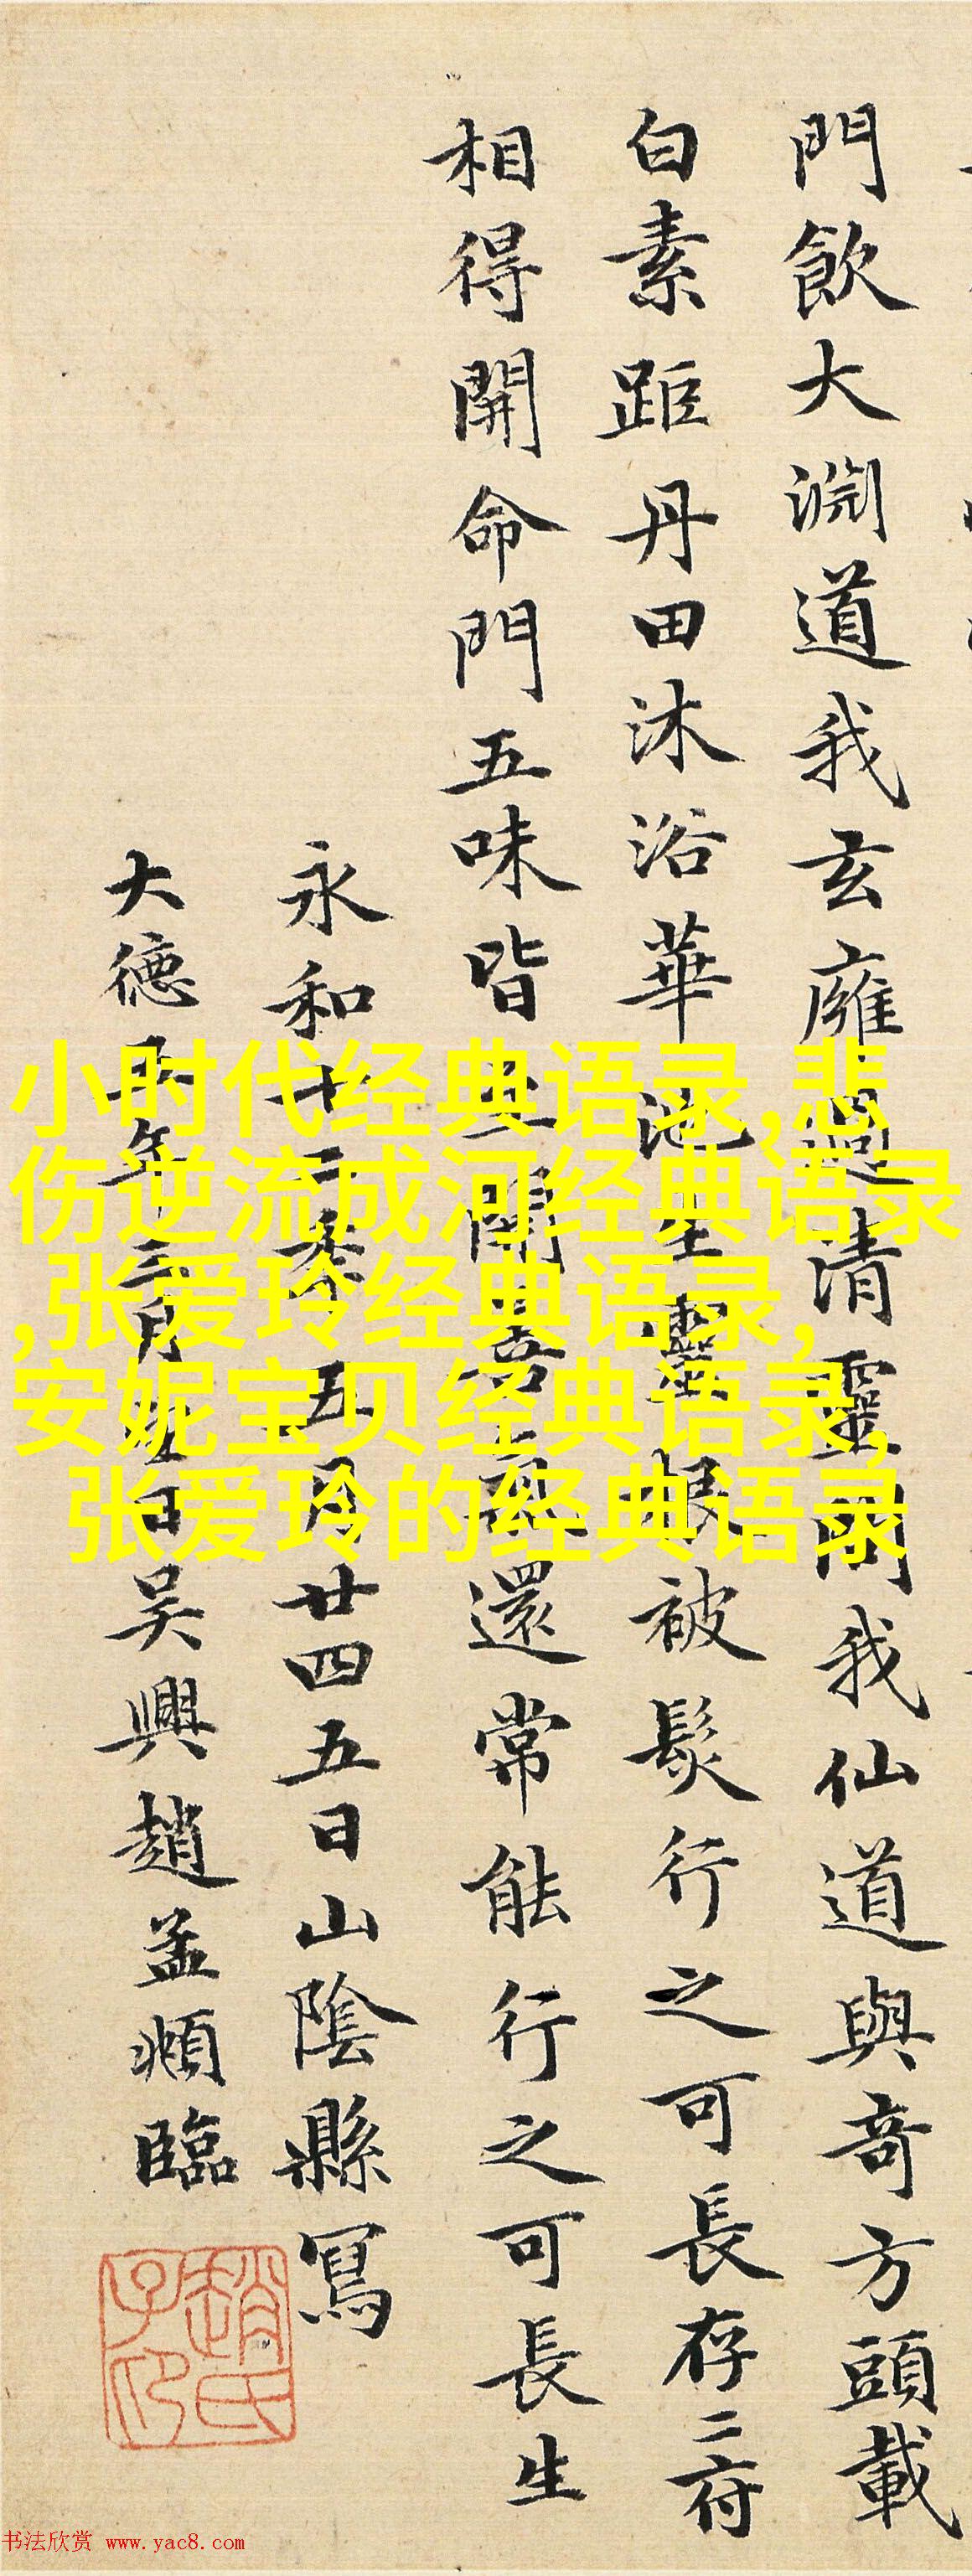 門飲大淵道我玄廱過清靈問我仙道與奇方頭載
白素距丹田沐浴華池生靈根被髮行之可長存二府
相得開命門五味皆至開善氣還常能行之可長生
永和十二年五月廿四五日山陰縣寫
大德五年三月日吳興趙孟頫臨
趙氏子昂
小时代经典语录,悲
伤逆流成河经典语录
,张爱玲经典语录,
安妮宝贝经典语录,
张爱玲的经典语录
书法欣赏 www.yac8.com